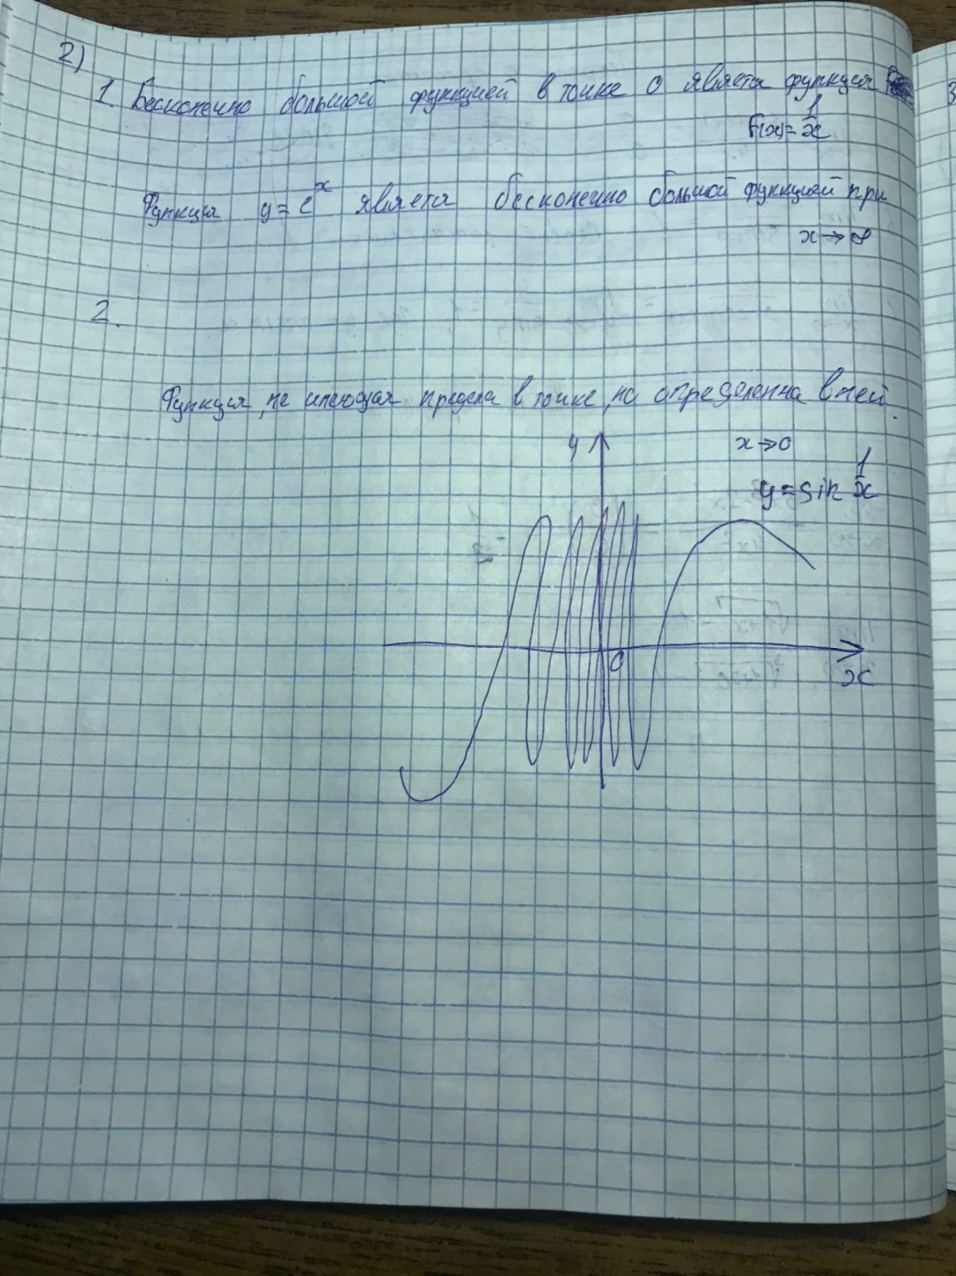 2)
1. Бесконечно большой функцией в точке 0 являетя функция
f(x)=1/x
Функция y=e^x являетя бесконечно большой функцией при
x→∞
2.
Функция, не имеющая предела в точке, но определенна в ней.
y
x→0
y=sin 1/x
0
x